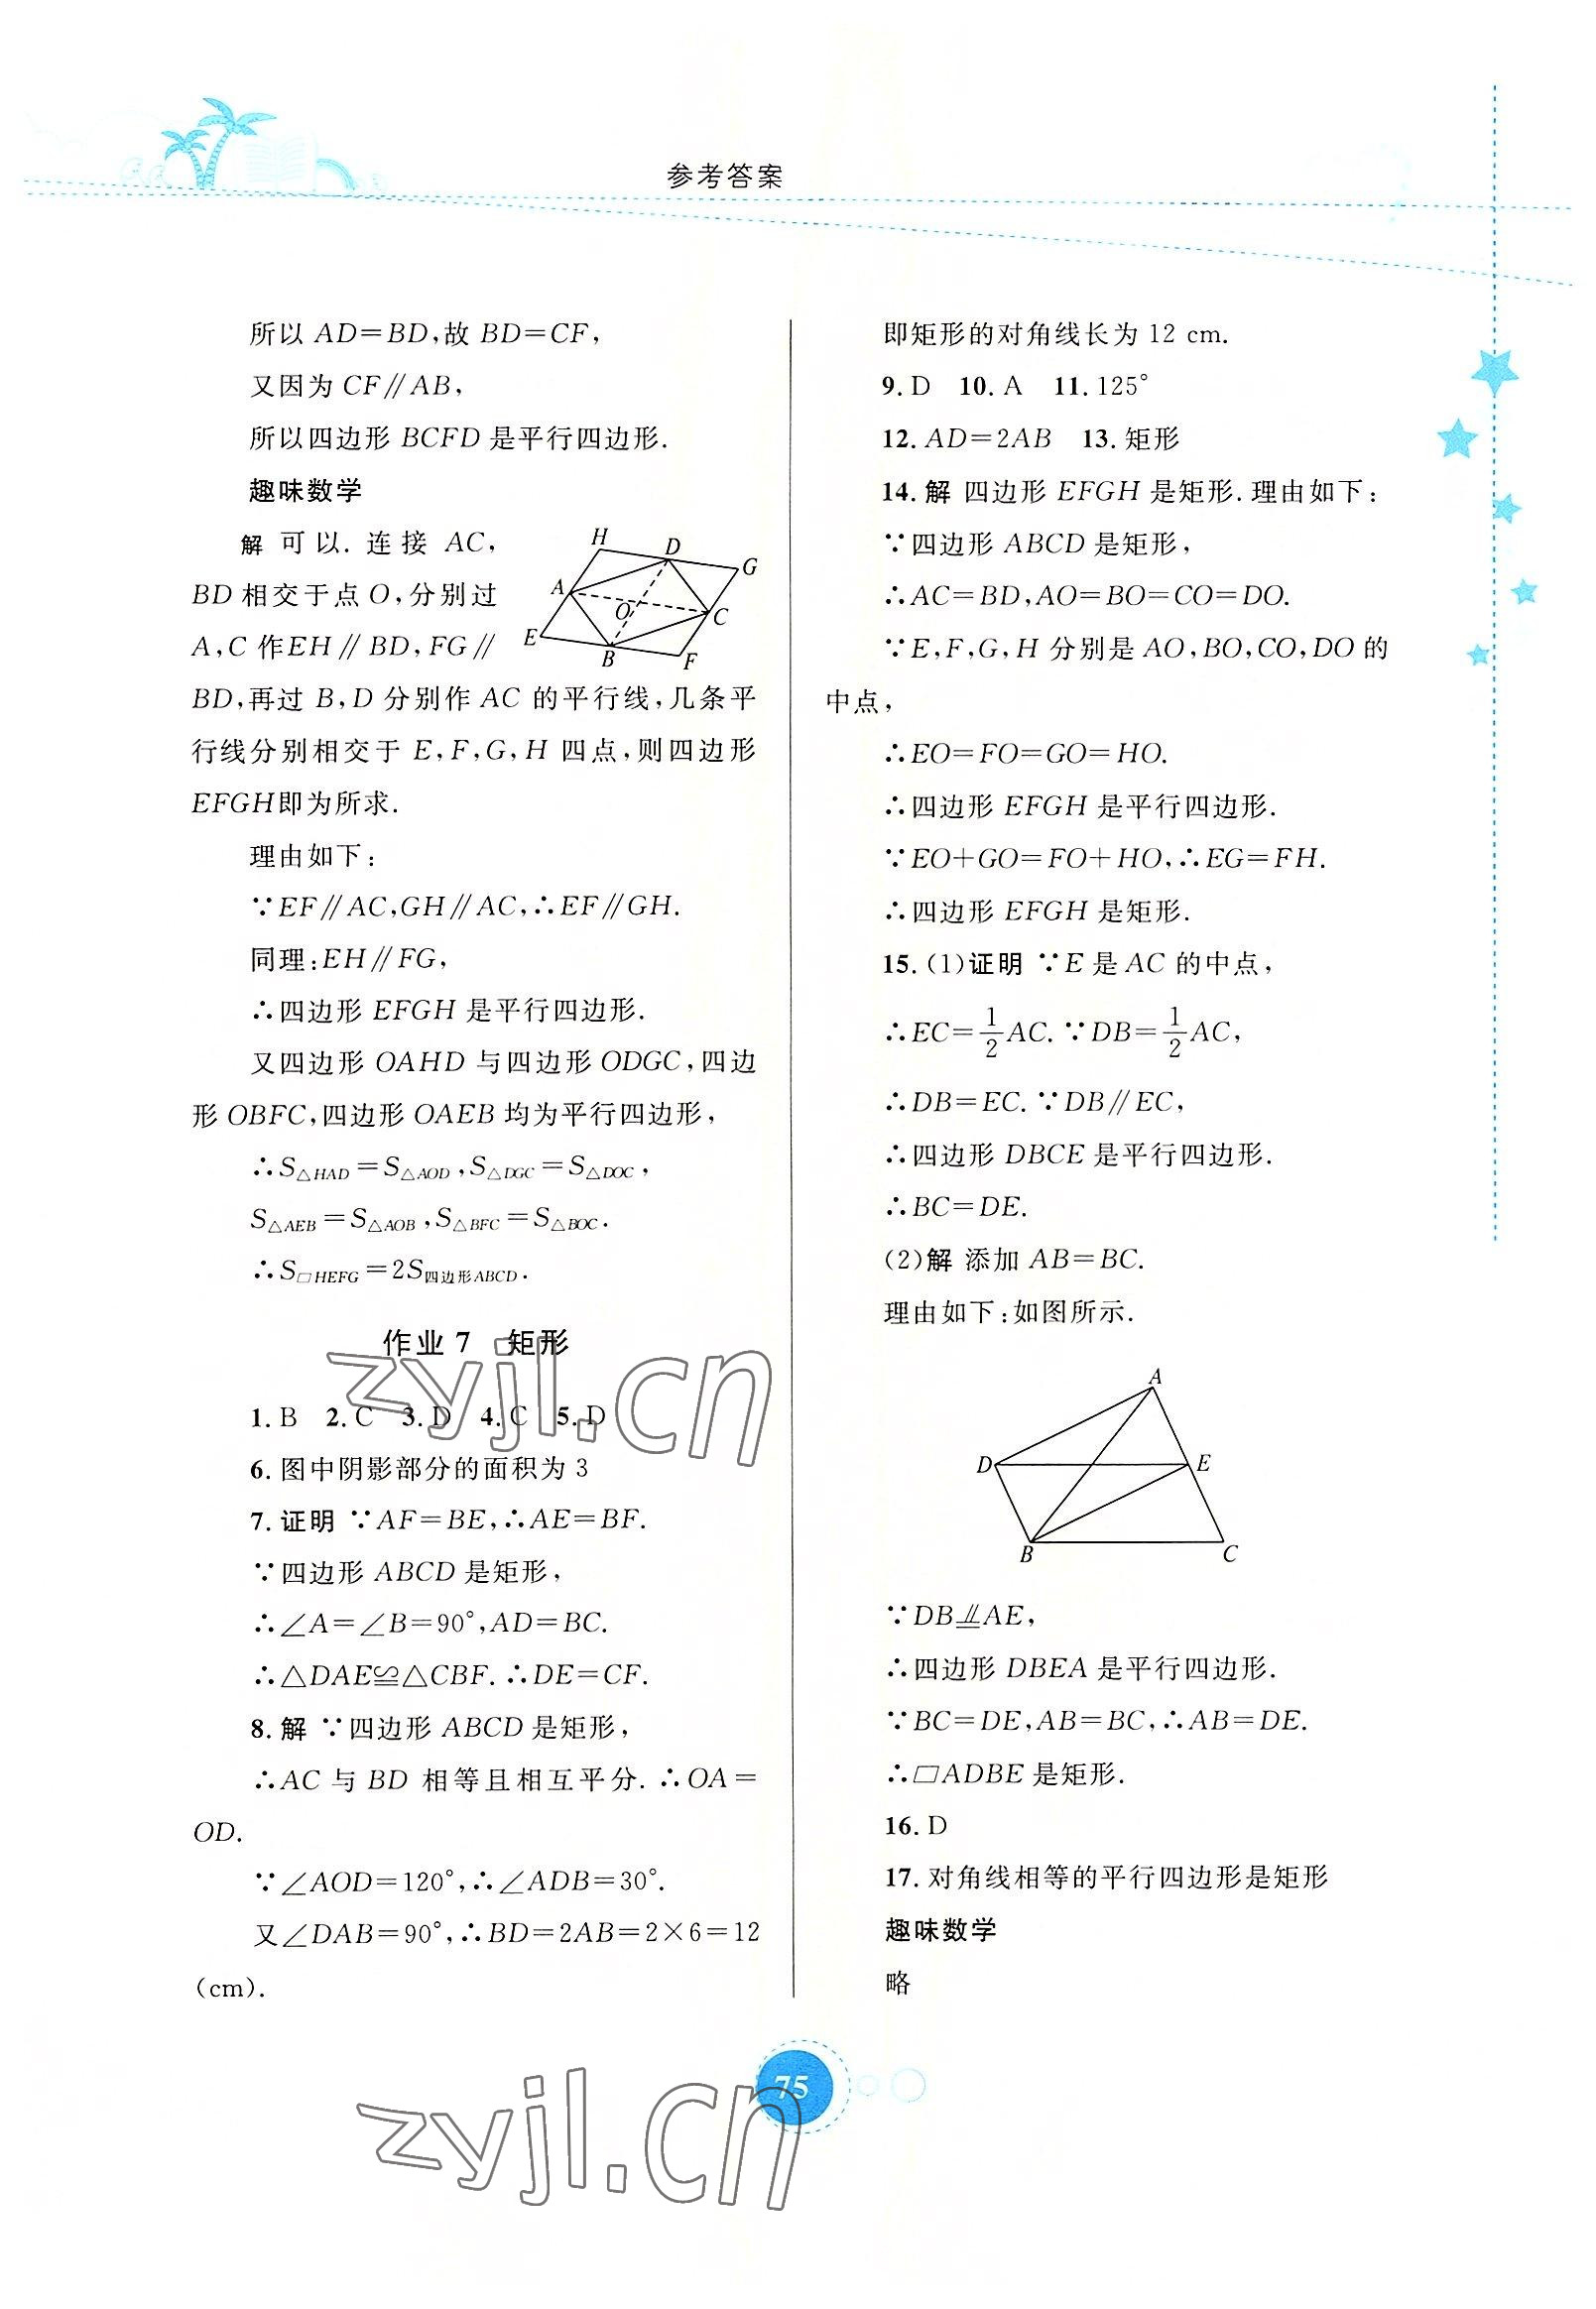 参考答案
所以 AD=BD,故 BD=CF,
又因为 CF∥AB,
所以四边形 BCFD 是平行四边形.
趣味数学
解 可以. 连接 AC,
BD 相交于点 O,分别过
A,C 作EH∥BD,FG∥
BD,再过 B,D 分别作 AC 的平行线,几条平
行线分别相交于 E,F,G,H 四点,则四边形
EFGH即为所求.
H
D
G
A
O
C
E
B
F
理由如下:
∵EF∥AC,GH∥AC,∴EF∥GH.
同理:EH∥FG,
∴四边形 EFGH 是平行四边形.
又四边形 OAHD 与四边形 ODGC,四边
形 OBFC,四边形 OAEB 均为平行四边形,
∴S△HAD=S△AOD,S△DGC=S△DOC,
S△AEB=S△AOB,S△BFC=S△BOC.
∴S▱HEFG=2S四边形ABCD.
作业 7 矩形
1. B 2. C 3. D 4. C 5. D
6. 图中阴影部分的面积为 3
7. 证明 ∵AF=BE,∴AE=BF.
∵四边形 ABCD 是矩形,
∴∠A=∠B=90°,AD=BC.
∴△DAE≌△CBF. ∴DE=CF.
8. 解 ∵四边形 ABCD 是矩形,
∴AC 与 BD 相等且相互平分. ∴OA=
OD.
∵∠AOD=120°,∴∠ADB=30°.
又∠DAB=90°,∴BD=2AB=2×6=12
(cm).
即矩形的对角线长为 12 cm.
9. D 10. A 11. 125°
12. AD=2AB 13. 矩形
14. 解 四边形 EFGH 是矩形. 理由如下:
∵四边形 ABCD 是矩形,
∴AC=BD,AO=BO=CO=DO.
∵E,F,G,H 分别是 AO,BO,CO,DO 的
中点,
∴EO=FO=GO=HO.
∴四边形 EFGH 是平行四边形.
∵EO+GO=FO+HO,∴EG=FH.
∴四边形 EFGH 是矩形.
15. (1)证明 ∵E 是 AC 的中点,
∴EC=1/2AC. ∵DB=1/2AC,
∴DB=EC. ∵DB∥EC,
∴四边形 DBCE 是平行四边形.
∴BC=DE.
(2)解 添加 AB=BC.
理由如下:如图所示.
A
D
E
B
C
∵DB⫫AE,
∴四边形 DBEA 是平行四边形.
∵BC=DE,AB=BC,∴AB=DE.
∴▱ADBE 是矩形.
16. D
17. 对角线相等的平行四边形是矩形
趣味数学
略
75
zyjl.cn
zyjl.cn